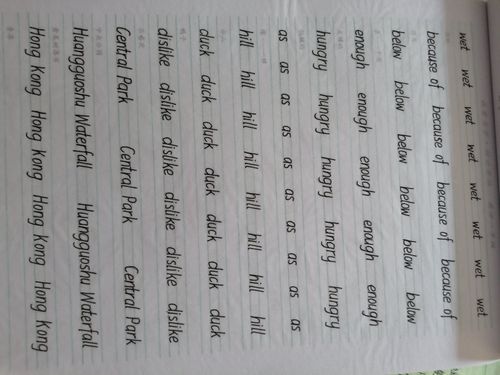 wet wet wet wet wet wet wet wet
because of because of because of because of
below below below below below below
enough enough enough enough enough
hungry hungry hungry hungry hungry
as as as as as as as as as as
hill hill hill hill hill hill hill hill
duck duck duck duck duck duck duck
dislike dislike dislike dislike dislike
Central Park Central Park Central Park
Huangguoshu Waterfall Huangguoshu Waterfall
Hong Kong Hong Kong Hong Kong Hong Kong